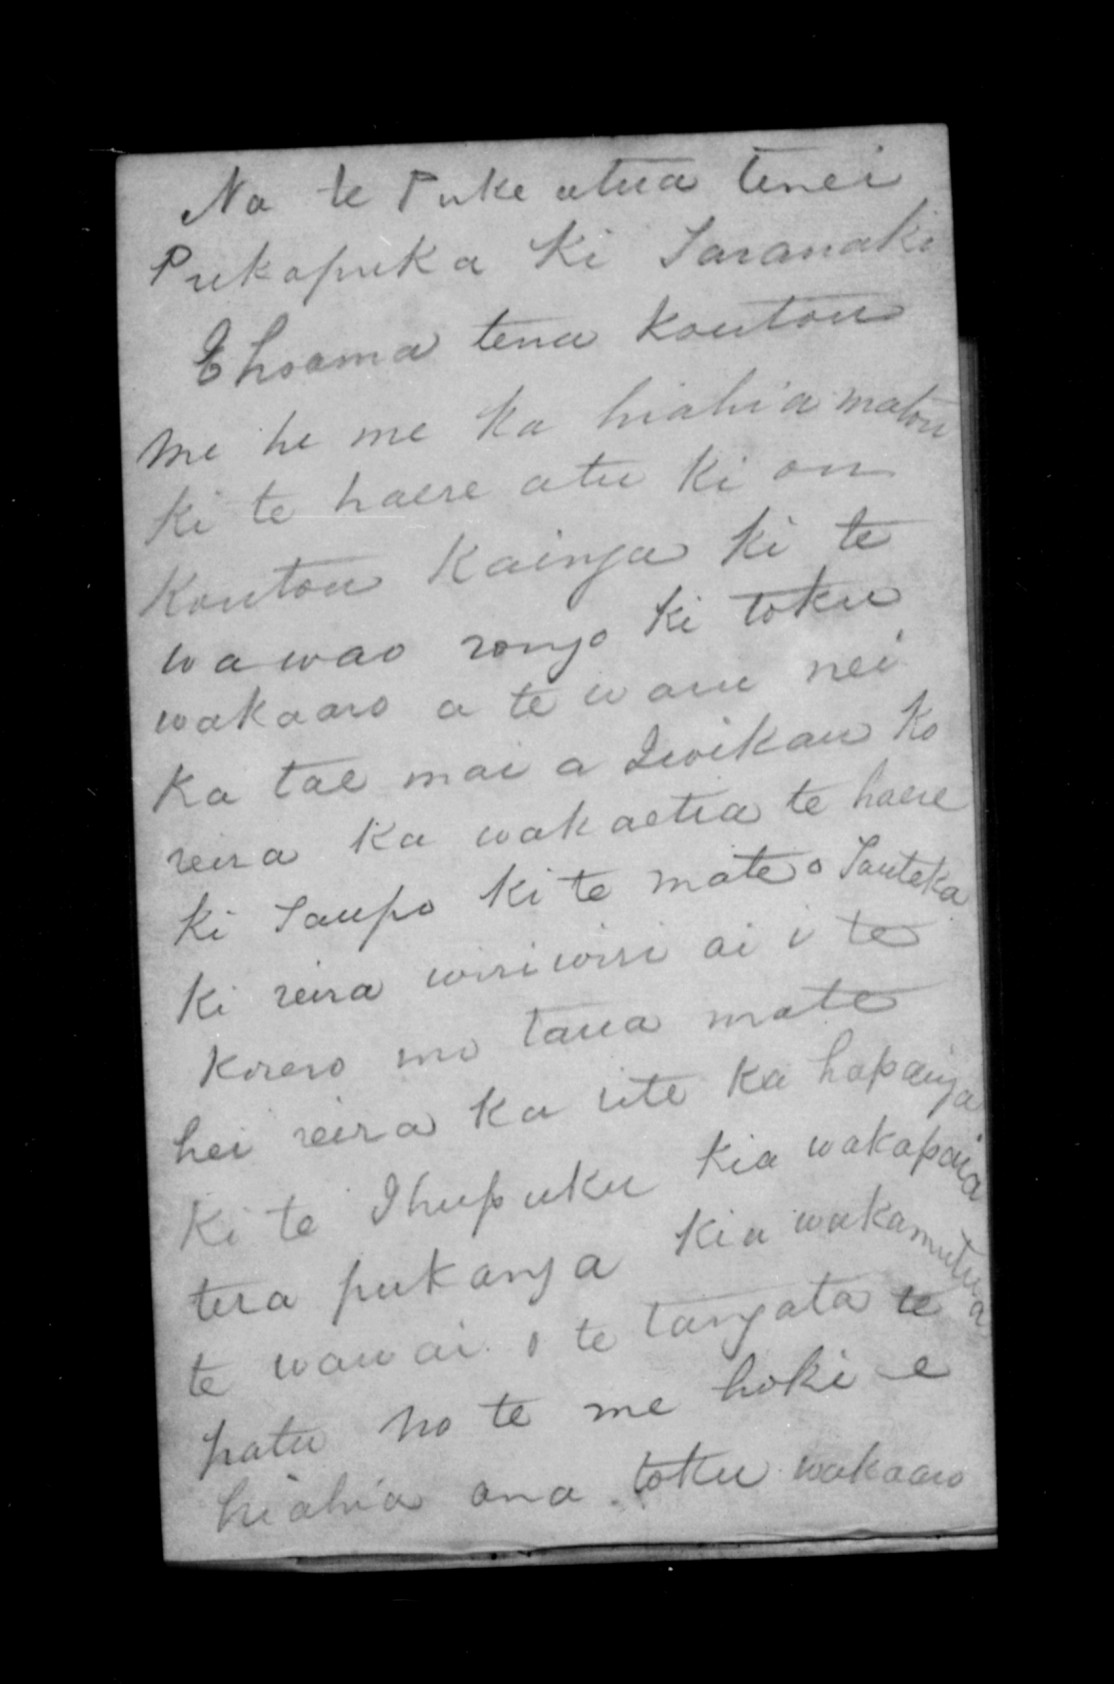 Na te Puke atua tenei
Pukapuka Ki Taranaki
E hoama tena koutou
me he me ka hiahia matou
ki te haere atu ki ou
koutou Kainga ki te
wawao rongo ki toku
wakaaro a te waru nei
Ka tae mai a Iwikau ko
reira ka wakaetia te haere
ki Taupo ki te mate o Tauteka
Ki reira wiriwiri ai i te
Korero mo taua mate
hei reira ka rite ka hapainga
Ki te Ihupuku kia wakapaia
tera pukanga kia wakamutua
te wawai o te tangata te
patu no te me hoki e
hiahia ana toku wakaaro